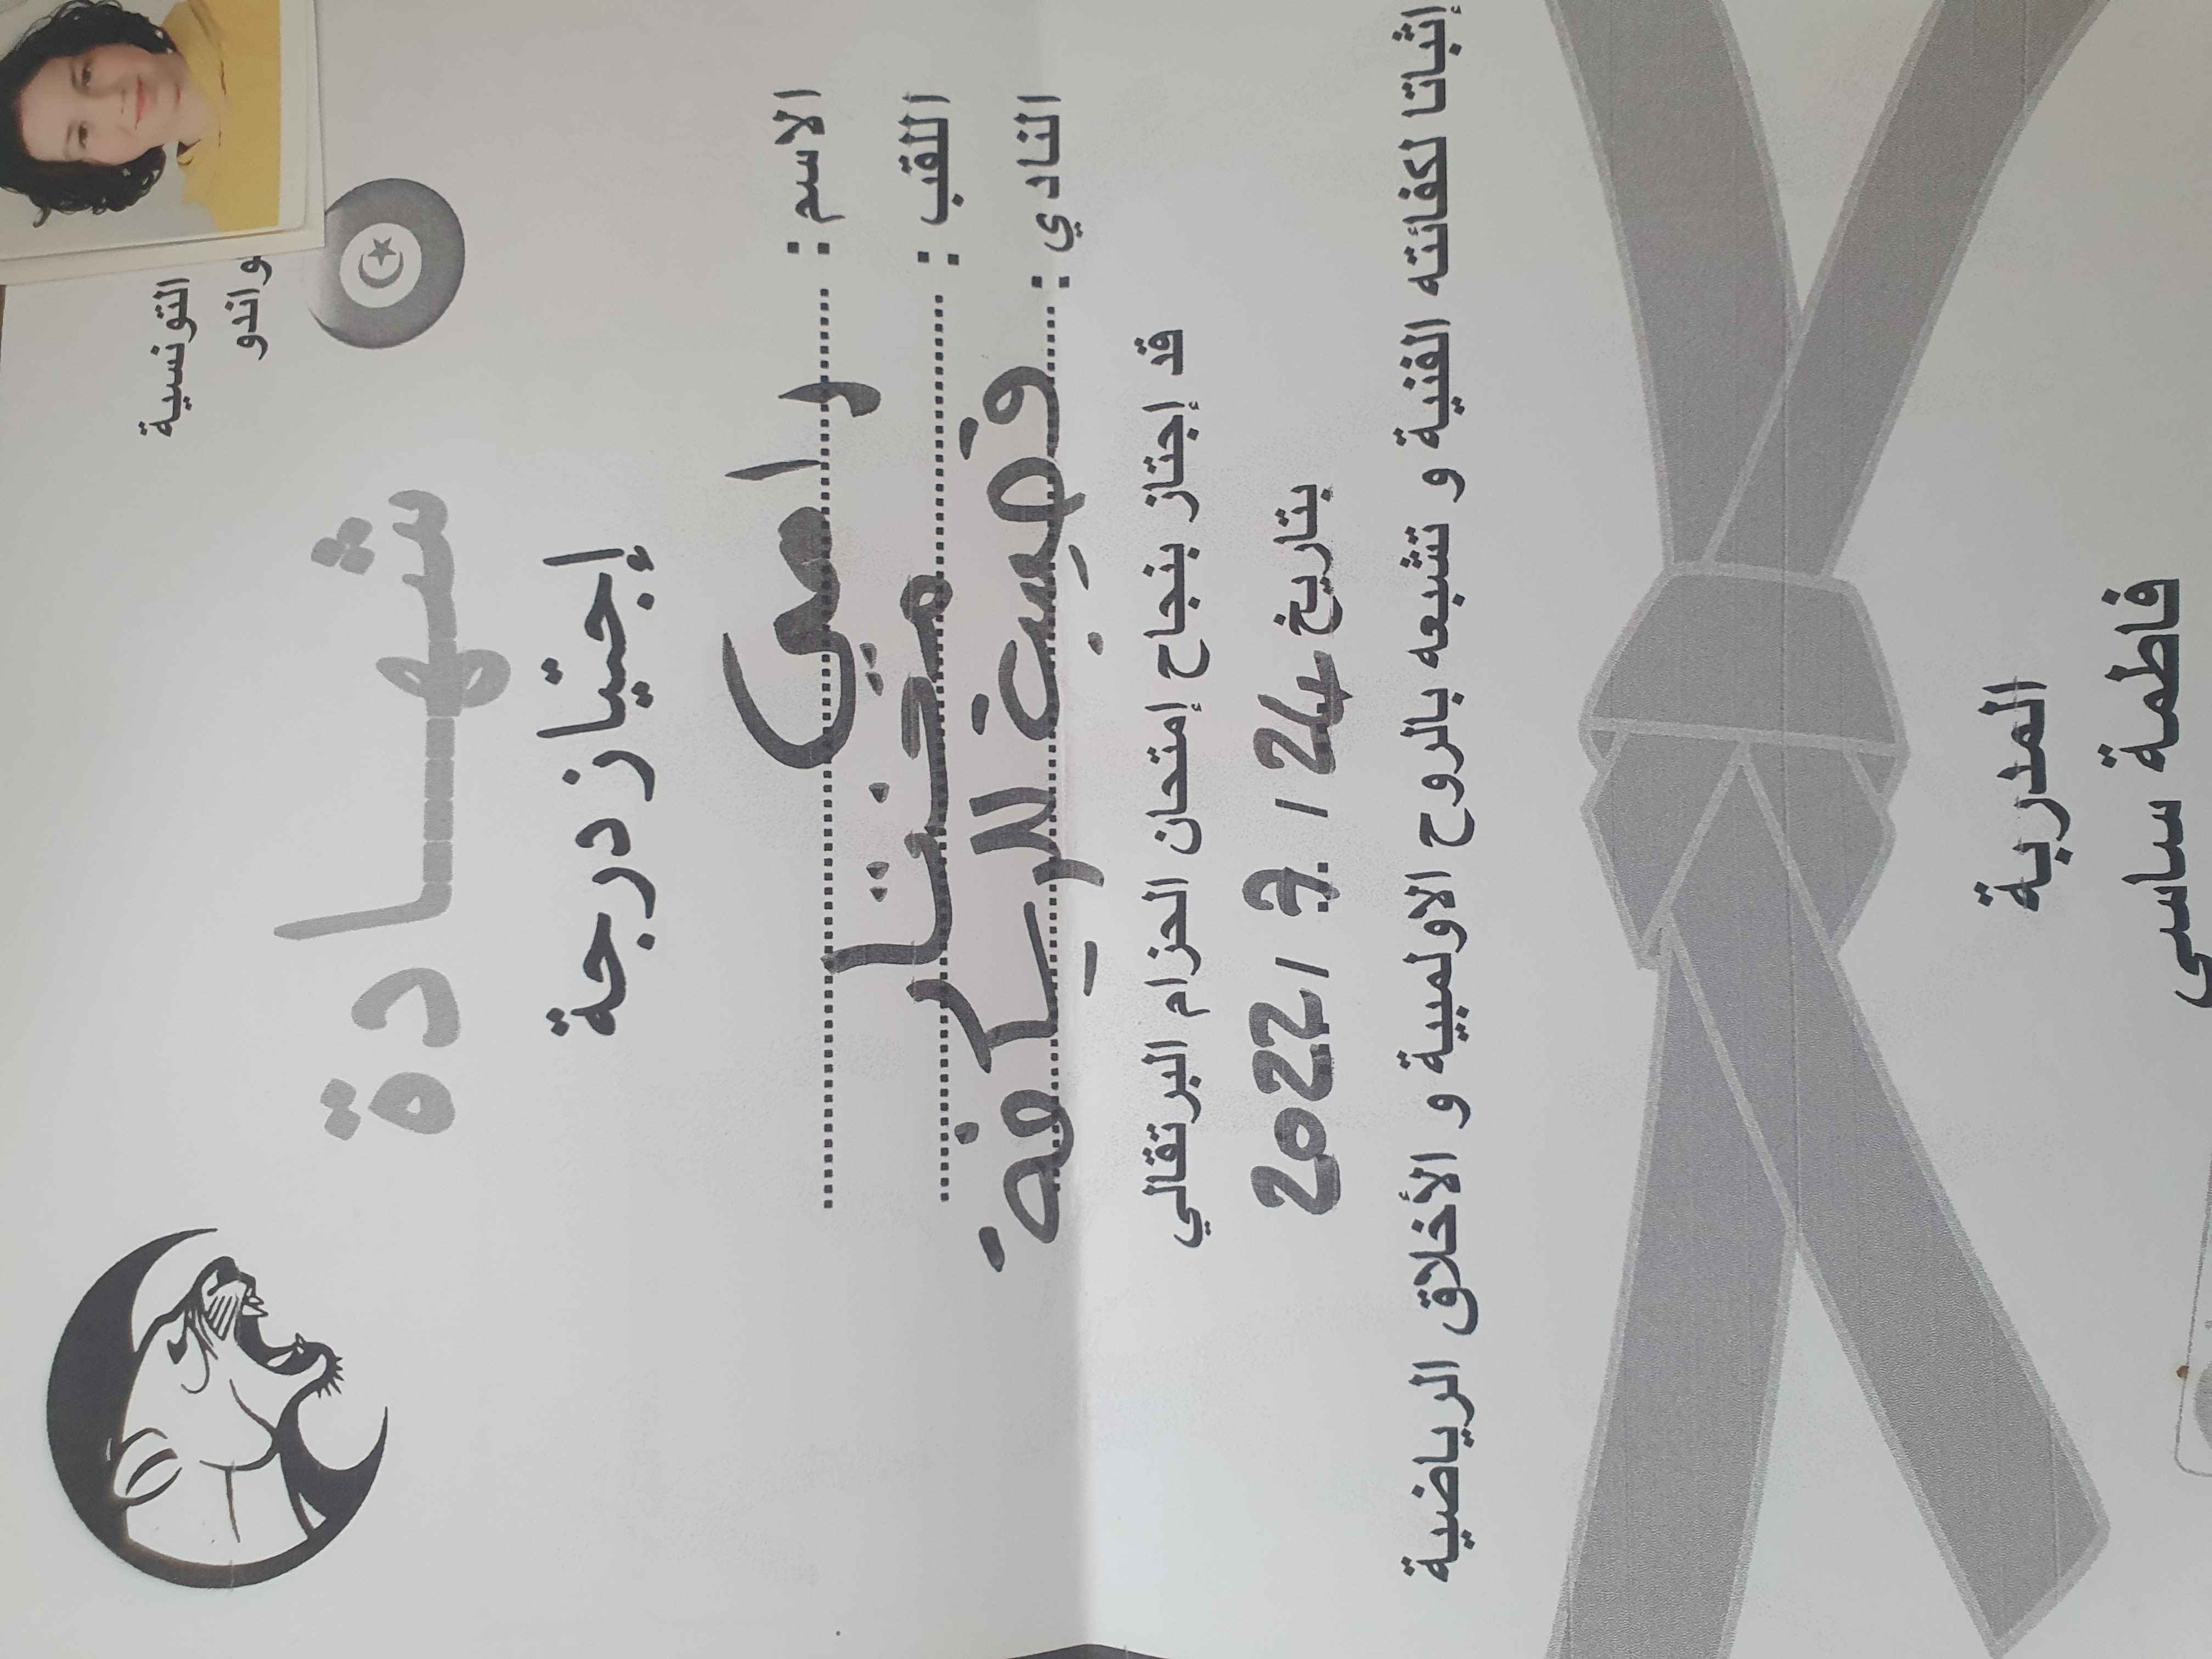 التونسية
واندو
شهادة
إجتياز درجة
الاسم : رامي
اللقب : مختار
النادي : قصبة للرياضة
قد إجتاز بنجاح إمتحان الحزام البرتقالي
بتاريخ 24 / 7 / 2022
إثباتا لكفائته الفنية و تشبعه بالروح الاولمبية و الأخلاق الرياضية
المدربة
فاطمة ساسي